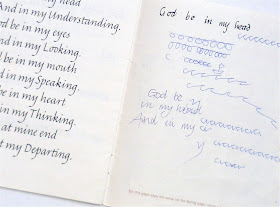 my head
And in my Understanding.
God be in my eyes
And in my Looking.
be in my mouth
in my Speaking.
be in my heart
in my Thinking.
at mine end
at my Departing.
God be in my head
God be
in my head
And in my